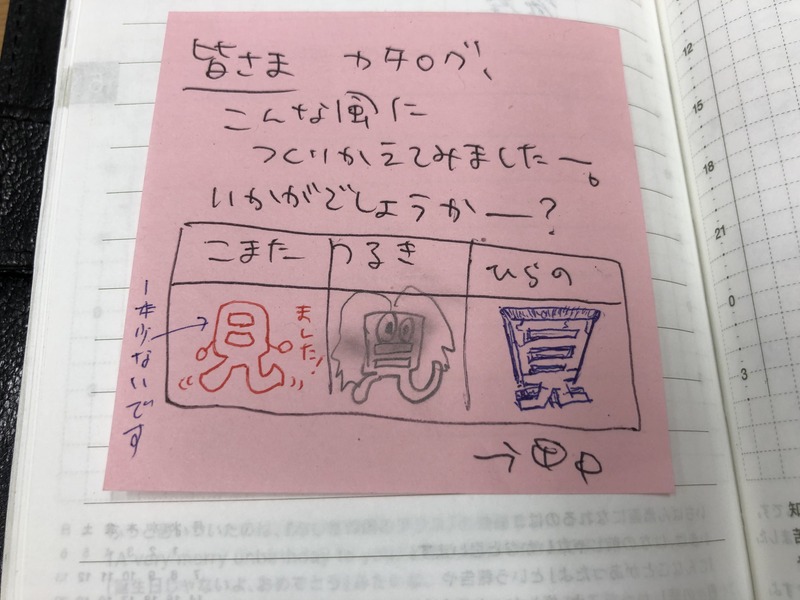 皆さま カタログ、
こんな風に
つくりかえてみましたー。
いかがでしょうかー?
こまた つるき ひらの
見 ました! 見 見
一本少ないです
→ 田中
12
15
18
21
0
3